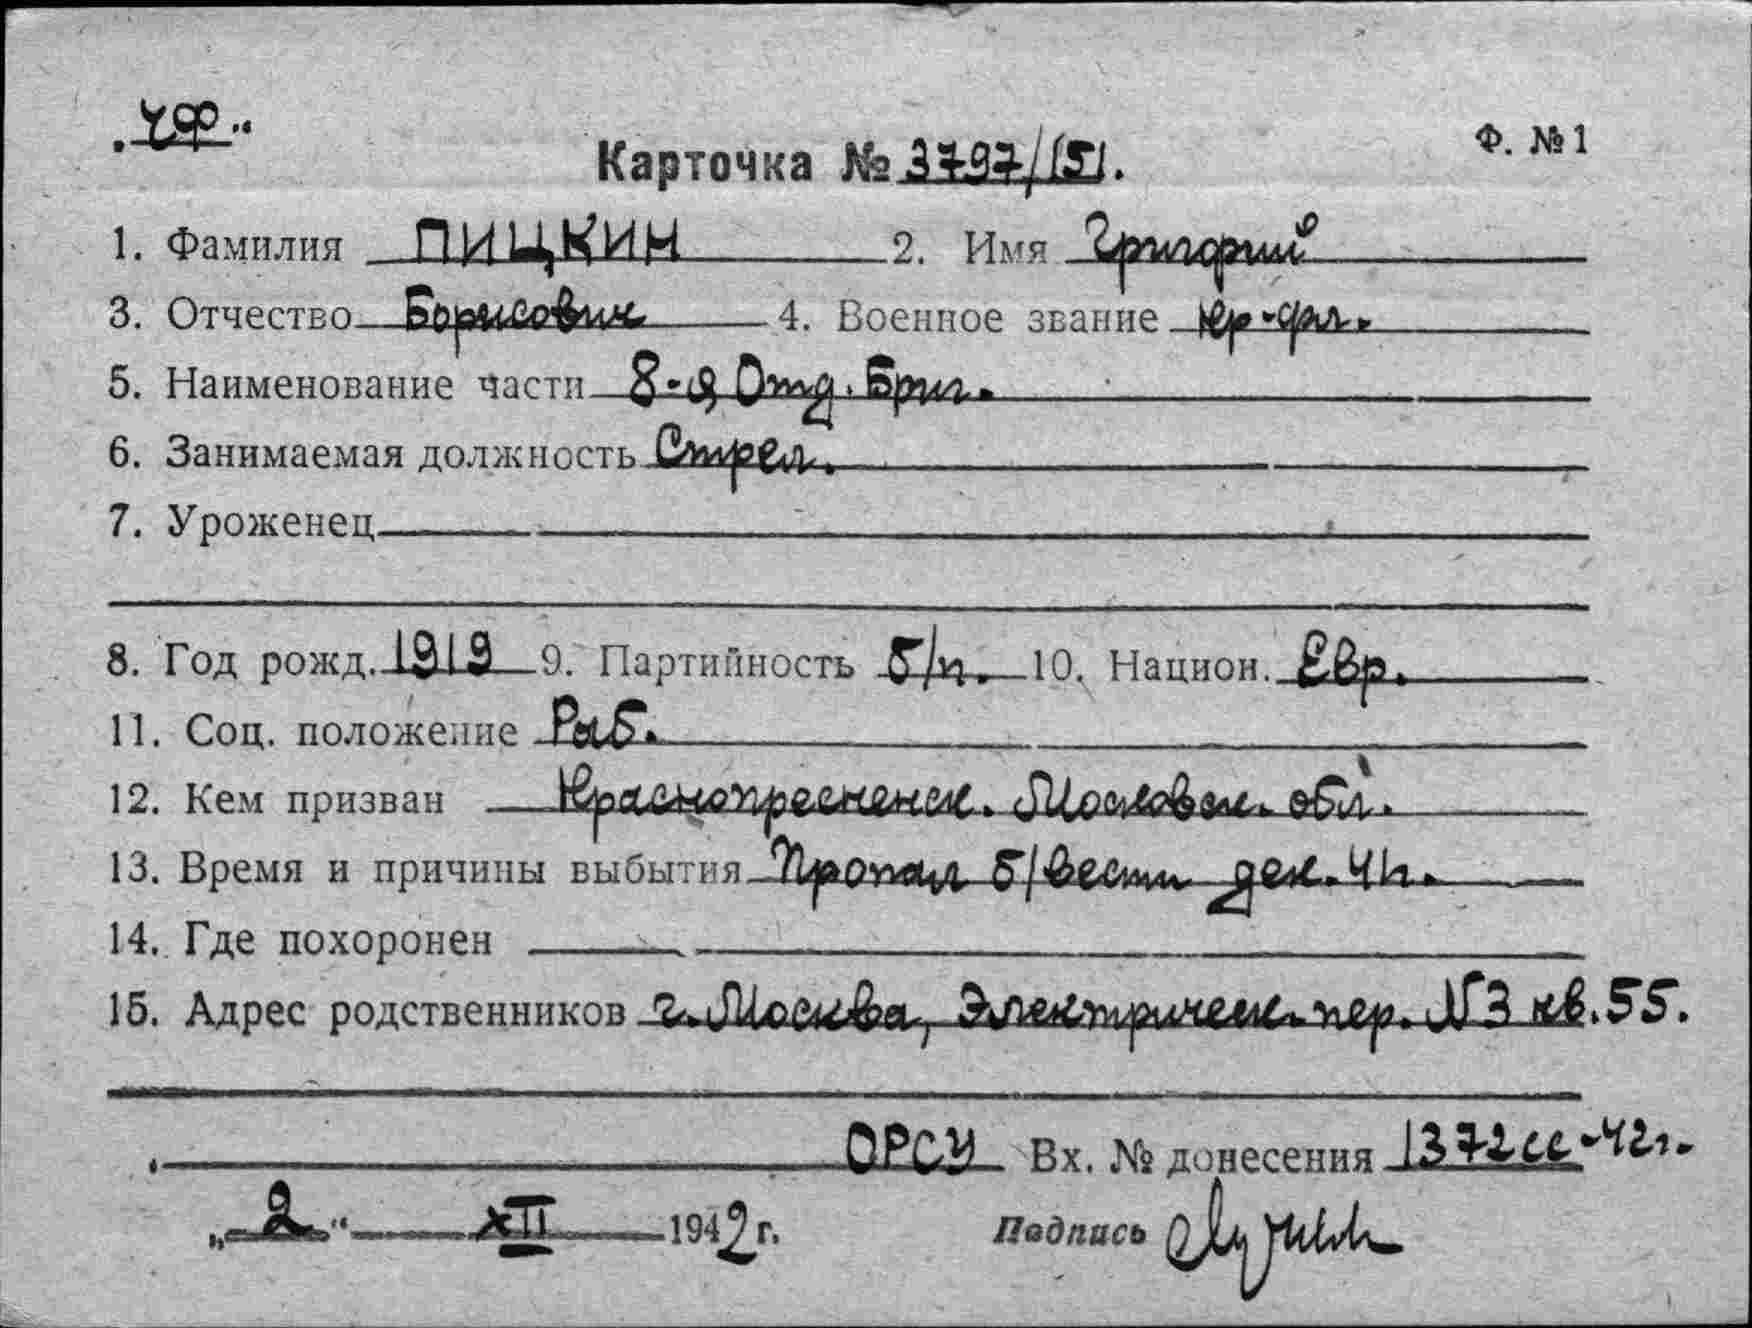 „ЧФ"
Ф. №1
Карточка № 3797/151.
1. Фамилия ПИЦКИН 2. Имя Григорий
3. Отчество Борисович 4. Военное звание кр-фл.
5. Наименование части 8-я Отд. Бриг.
6. Занимаемая должность Стрел.
7. Уроженец
8. Год рожд. 1919 9. Партийность б/п. 10. Национ. Евр.
11. Соц. положение Раб.
12. Кем призван Краснопресненск. Московск. обл.
13. Время и причины выбытия Пропал б/вести дек. 41г.
14. Где похоронен
15. Адрес родственников г. Москва, Электрическ. пер. N3 кв. 55.
ОРСУ Вх. № донесения 1372сс-42г.
„2" XII 1942 г. Подпись